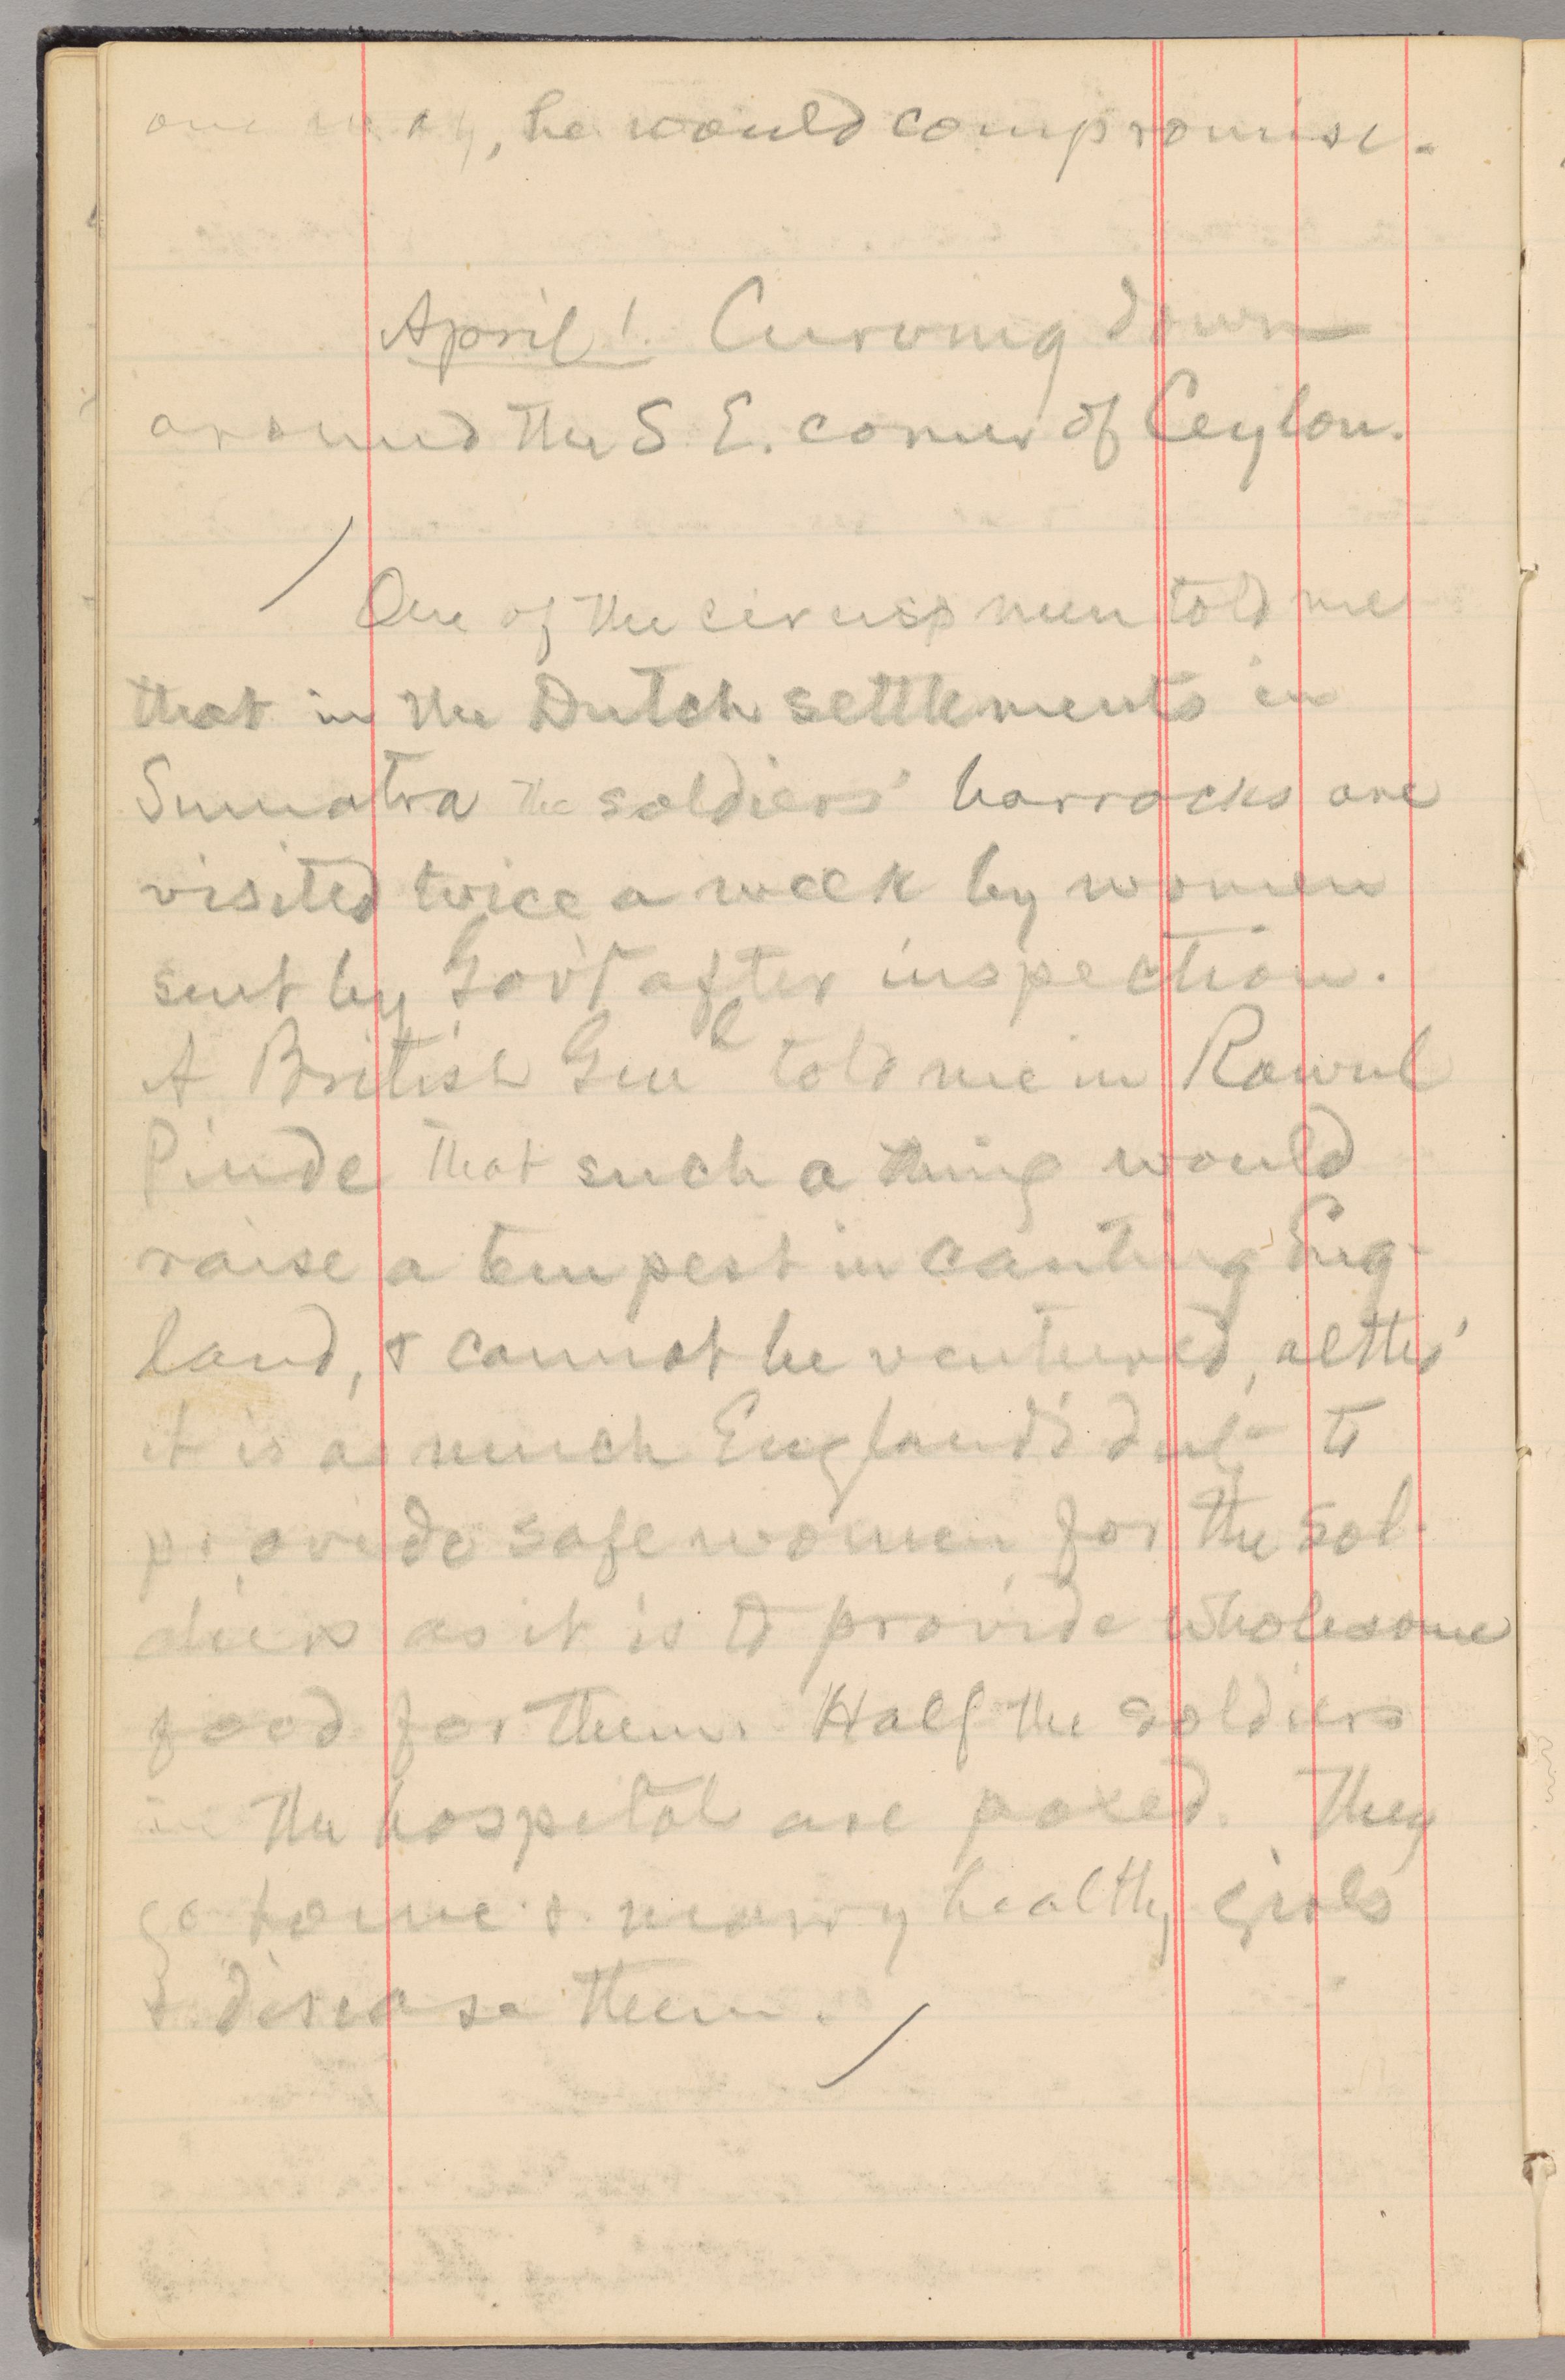 one way, he would compromise.
April 1. Curving down
around the S. E. corner of Ceylon.
One of the circus men told me
that in the Dutch settlements in
Sumatra the soldiers' barracks are
visited twice a week by women
sent by Gov't after inspection.
A British Genl told me in Rawul
Pinde that such a thing would
raise a tempest in canting Eng-
land, & cannot be ventured, altho'
it is as much England's duty to
provide safe women for the sol-
diers as it is to provide wholesome
food for them. Half the soldiers
in the hospital are poxed. They
go home & marry healthy girls
& disease them.